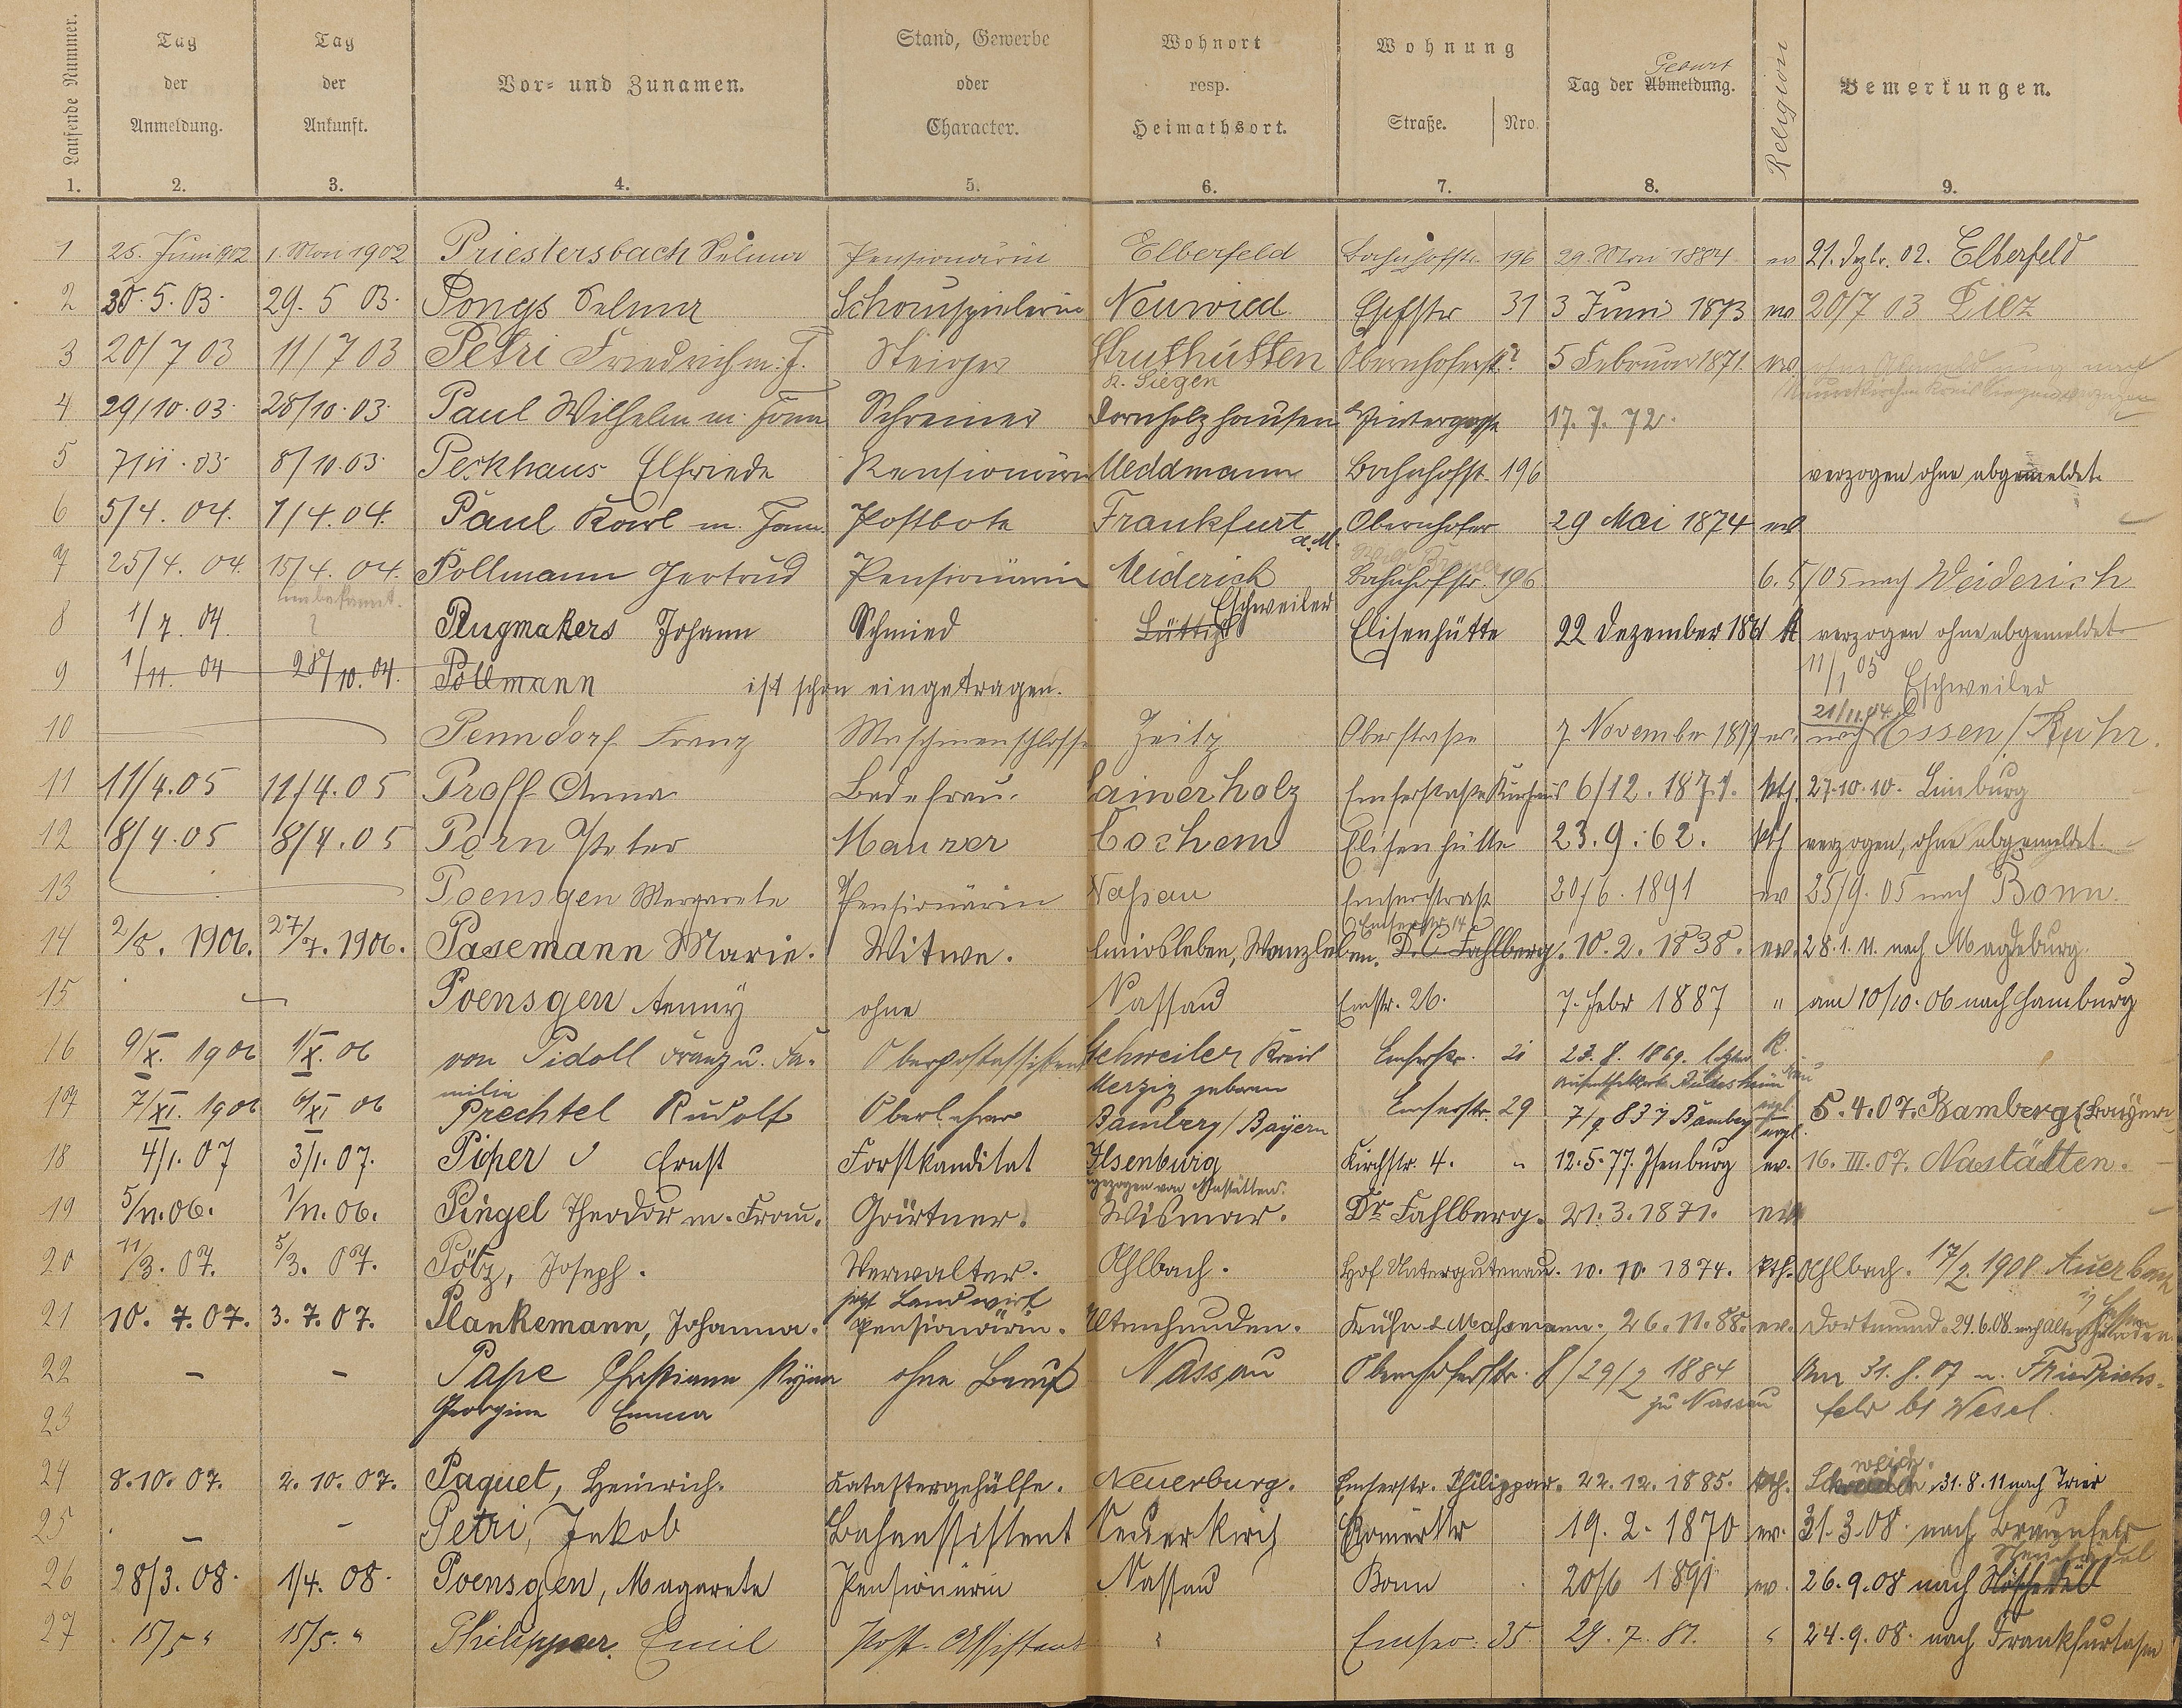 Laufende Nummer.
Tag der Anmeldung.
Tag der Ankunft.
Vor= und Zunamen.
Stand, Gewerbe oder Character.
Wohnort resp. Heimathsort.
Wohnung
Straße. Nro.
Tag der Abmeldung. Geburt
Religion
Bemerkungen.
1. 2. 3. 4. 5. 6. 7. 8. 9.
1 25. Juni 1902 1. Mai 1902 Priestersbach Selma Pensionärin Elberfeld Bahnhofstr. 196 29. Mai 1884 ev 21. Dezbr. 02. Elberfeld
2 30. 5. 03. 29. 5 03. Pongs Selma Schauspielerin Neuwied 31 3 Juni 1873 ev 20/7 03 Diez
3 20/7 03 11/7 03 Petri Friedrich m. F. Steiger Struthütten Obernhoferst. ? 5 Februar 1871. ev. ohne Abmeldung nach
K. Siegen Neunkirchen Kreis Siegen verzogen
4 29/10. 03. 28/10. 03. Paul Wilhelm m. Fam Schreiner Dornholzhausen Hintergasse 17. 7. 72.
5 7/11. 03 8/10. 03. Peckhaus Elfriede Pensionärin Meddmann Bahnhofst. 196 verzogen ohne abgemeldet.
6 5/4. 04. 1/4. 04. Paul Karl m. Fam. Postbote Frankfurt a. M. Obernhofer 29 Mai 1874 ev
7 25/4. 04. 15/4. 04. Pollmann Gertrud Pensionärin Meiderich Bahnhofstr. 196 6. 5/05 nach Meiderich
unbekannt.
8 1/7. 04. ? Plugmakers Johann Schmied Lüttich Eschweiler Elisenhütte 22 Dezember 1861 k verzogen ohne abgemeldet
9 1/11. 04 28/10. 04. Pollmann ist schon eingetragen. 11/1 05 Eschweiler
10 Penndorf Franz Maschinenschlosse Zeitz Oberstraße 7 November 1877 ev. 21/11.04. nach Essen/Ruhr.
11 11/4. 05 11/4. 05 Proff Anna Badefrau. Lainerholz Emserstraße Kurhaus 6/12. 1871. kth. 27.10.10. Limburg
12 8/4. 05 8/4. 05 Porn Peter Maurer Cochem Elisenhütte 23. 9. 62. kth verzogen, ohne abgemeldet.
13 Poensgen Margarete Pensionärin Nassau Emserstraß 20/6. 1891 ev 25/9. 05 nach Bonn.
Emserstr. 14
14 2/8. 1906. 27/7. 1906. Pasemann Marie. Witwe. Emiosleben, Wanzleben. D. C. Fahlberg. 10. 2. 1838. ev. 28. 1. 11. nach Magdeburg.
15 Poensgen Aenny ohne Nassau Emstr. 26. 7. Febr 1887 " am 10/10. 06 nach Hamburg
16 9/X. 1906 1/X. 06 von Pidoll Franz u. Fa- Oberpostassistent Schweiler Kreis Emserstr. 21 23. 8. 1869. letzter K.
milie Merzig geboren Aufenthaltsort Rüdesheim
17 7/XI. 1906 6/XI 06 Prechtel Rudolf Oberlehrer Bamberg/Bayern Emserstr. 29 7/9 837 Bamberg evgl. 5. 4. 07. Bamberg (Bayern)
18 4/1. 07 3/1. 07. Piper Ernst Forstkanditat Ilsenburg Kirchstr. 4. " 12. 5. 77. Ilsenburg ev. 16. III. 07. Nastätten.
zugezogen von Nastätten.
19 5/11. 06. 1/11. 06. Pingel Theodor m. Frau. Gärtner. Wismar. Dr. Fahlberg. 21. 3. 1871. ev
20 11/3. 07. 5/3. 07. Pötz, Joseph. Verwalter. Ahlbach. Hof Untergutenau. 10. 10. 1874. kth. Ahlbach. 17/2. 1908 Auerbach
jetzt Landwirt
21 10. 7. 07. 3. 7. 07. Plankemann, Johanna. Pensionärin. Altenhunden. Kuhn & Mahsmann. 26. 11. 88. ev. Dortmund. 29. 6. 08. nach Altenhunden
22 - - Pape Christiane ohne Beruf Nassau Obernhoferstr. 8 29/2 1884 Am 31. 8. 07 n. Friedrichs-
23 Georgine Emma zu Nassau feld bs Wesel.
24 8. 10. 07. 2. 10. 07. Paquet, Heinrich. Katastergehülfe. Neuerburg. Emserstr. Philippar. 22. 12. 1885. kth. 31. 8. 11 nach Trier
25 - - Petri, Jakob Bahnassistent Neuerkirch Römerstr 19. 2. 1870 ev. 31. 3. 08. nach Braunfels
26 28/3. 08. 1/4. 08. Poensgen, Magarete Pensionärin Nassau Bonn 20/6 1891 ev. 26. 9. 08 nach
27 15/5 " 15/5. " Philippar. Emil Post-Assistent " Emser. 35. 29. 7. 81. " 24. 9. 08. nach Frankfurt a/m